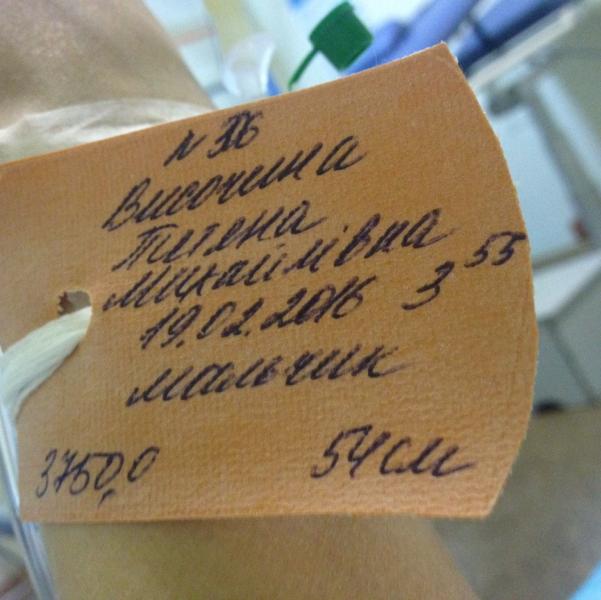 N 36
Височина
Тетяна
Михайлівна
19.02.2016 3 55
мальчик
3750,0 54 см